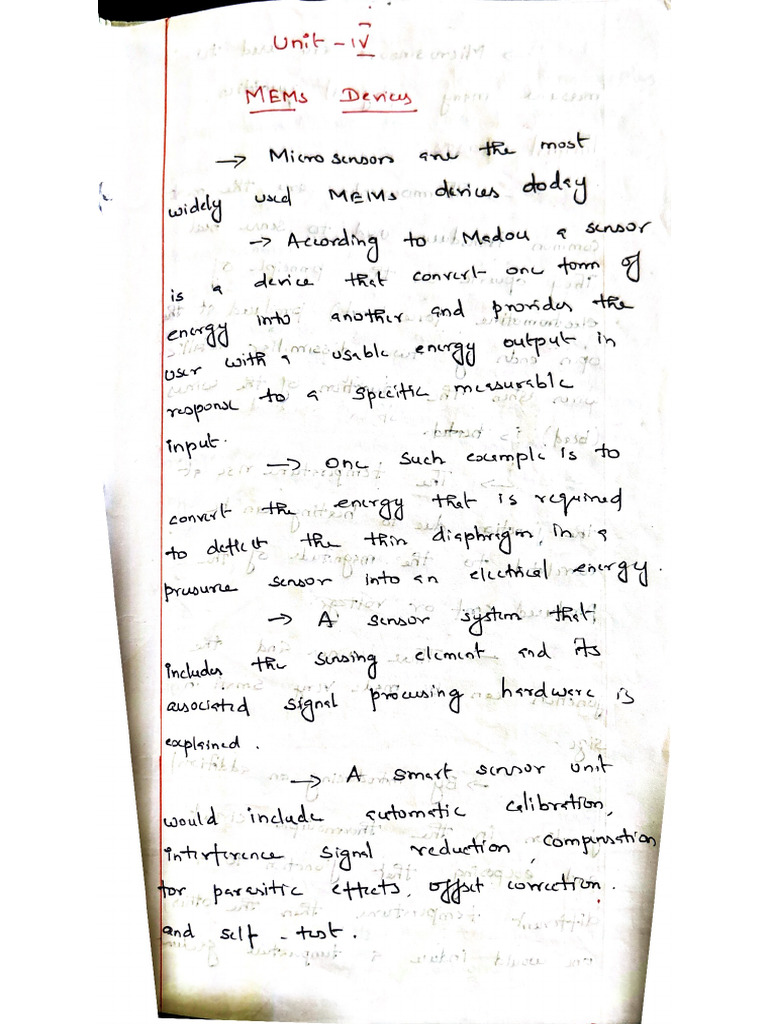 Unit - IV
MEMs Devices
→ Micro sensors are the most
widely used MEMs devices today
→ According to Madou a sensor
is a device that convert one form of
energy into another and provides the
user with a usable energy output in
response to a specific measurable
input.
→ One such example is to
convert the energy that is required
to deflect the thin diaphragm, in a
pressure sensor into an electrical energy.
→ A sensor system that
includes the sensing element and its
associated signal processing hardware is
explained.
→ A smart sensor unit
would include automatic calibration,
interference signal reduction, compensation
for parasitic effects, offset correction.
and self - test.